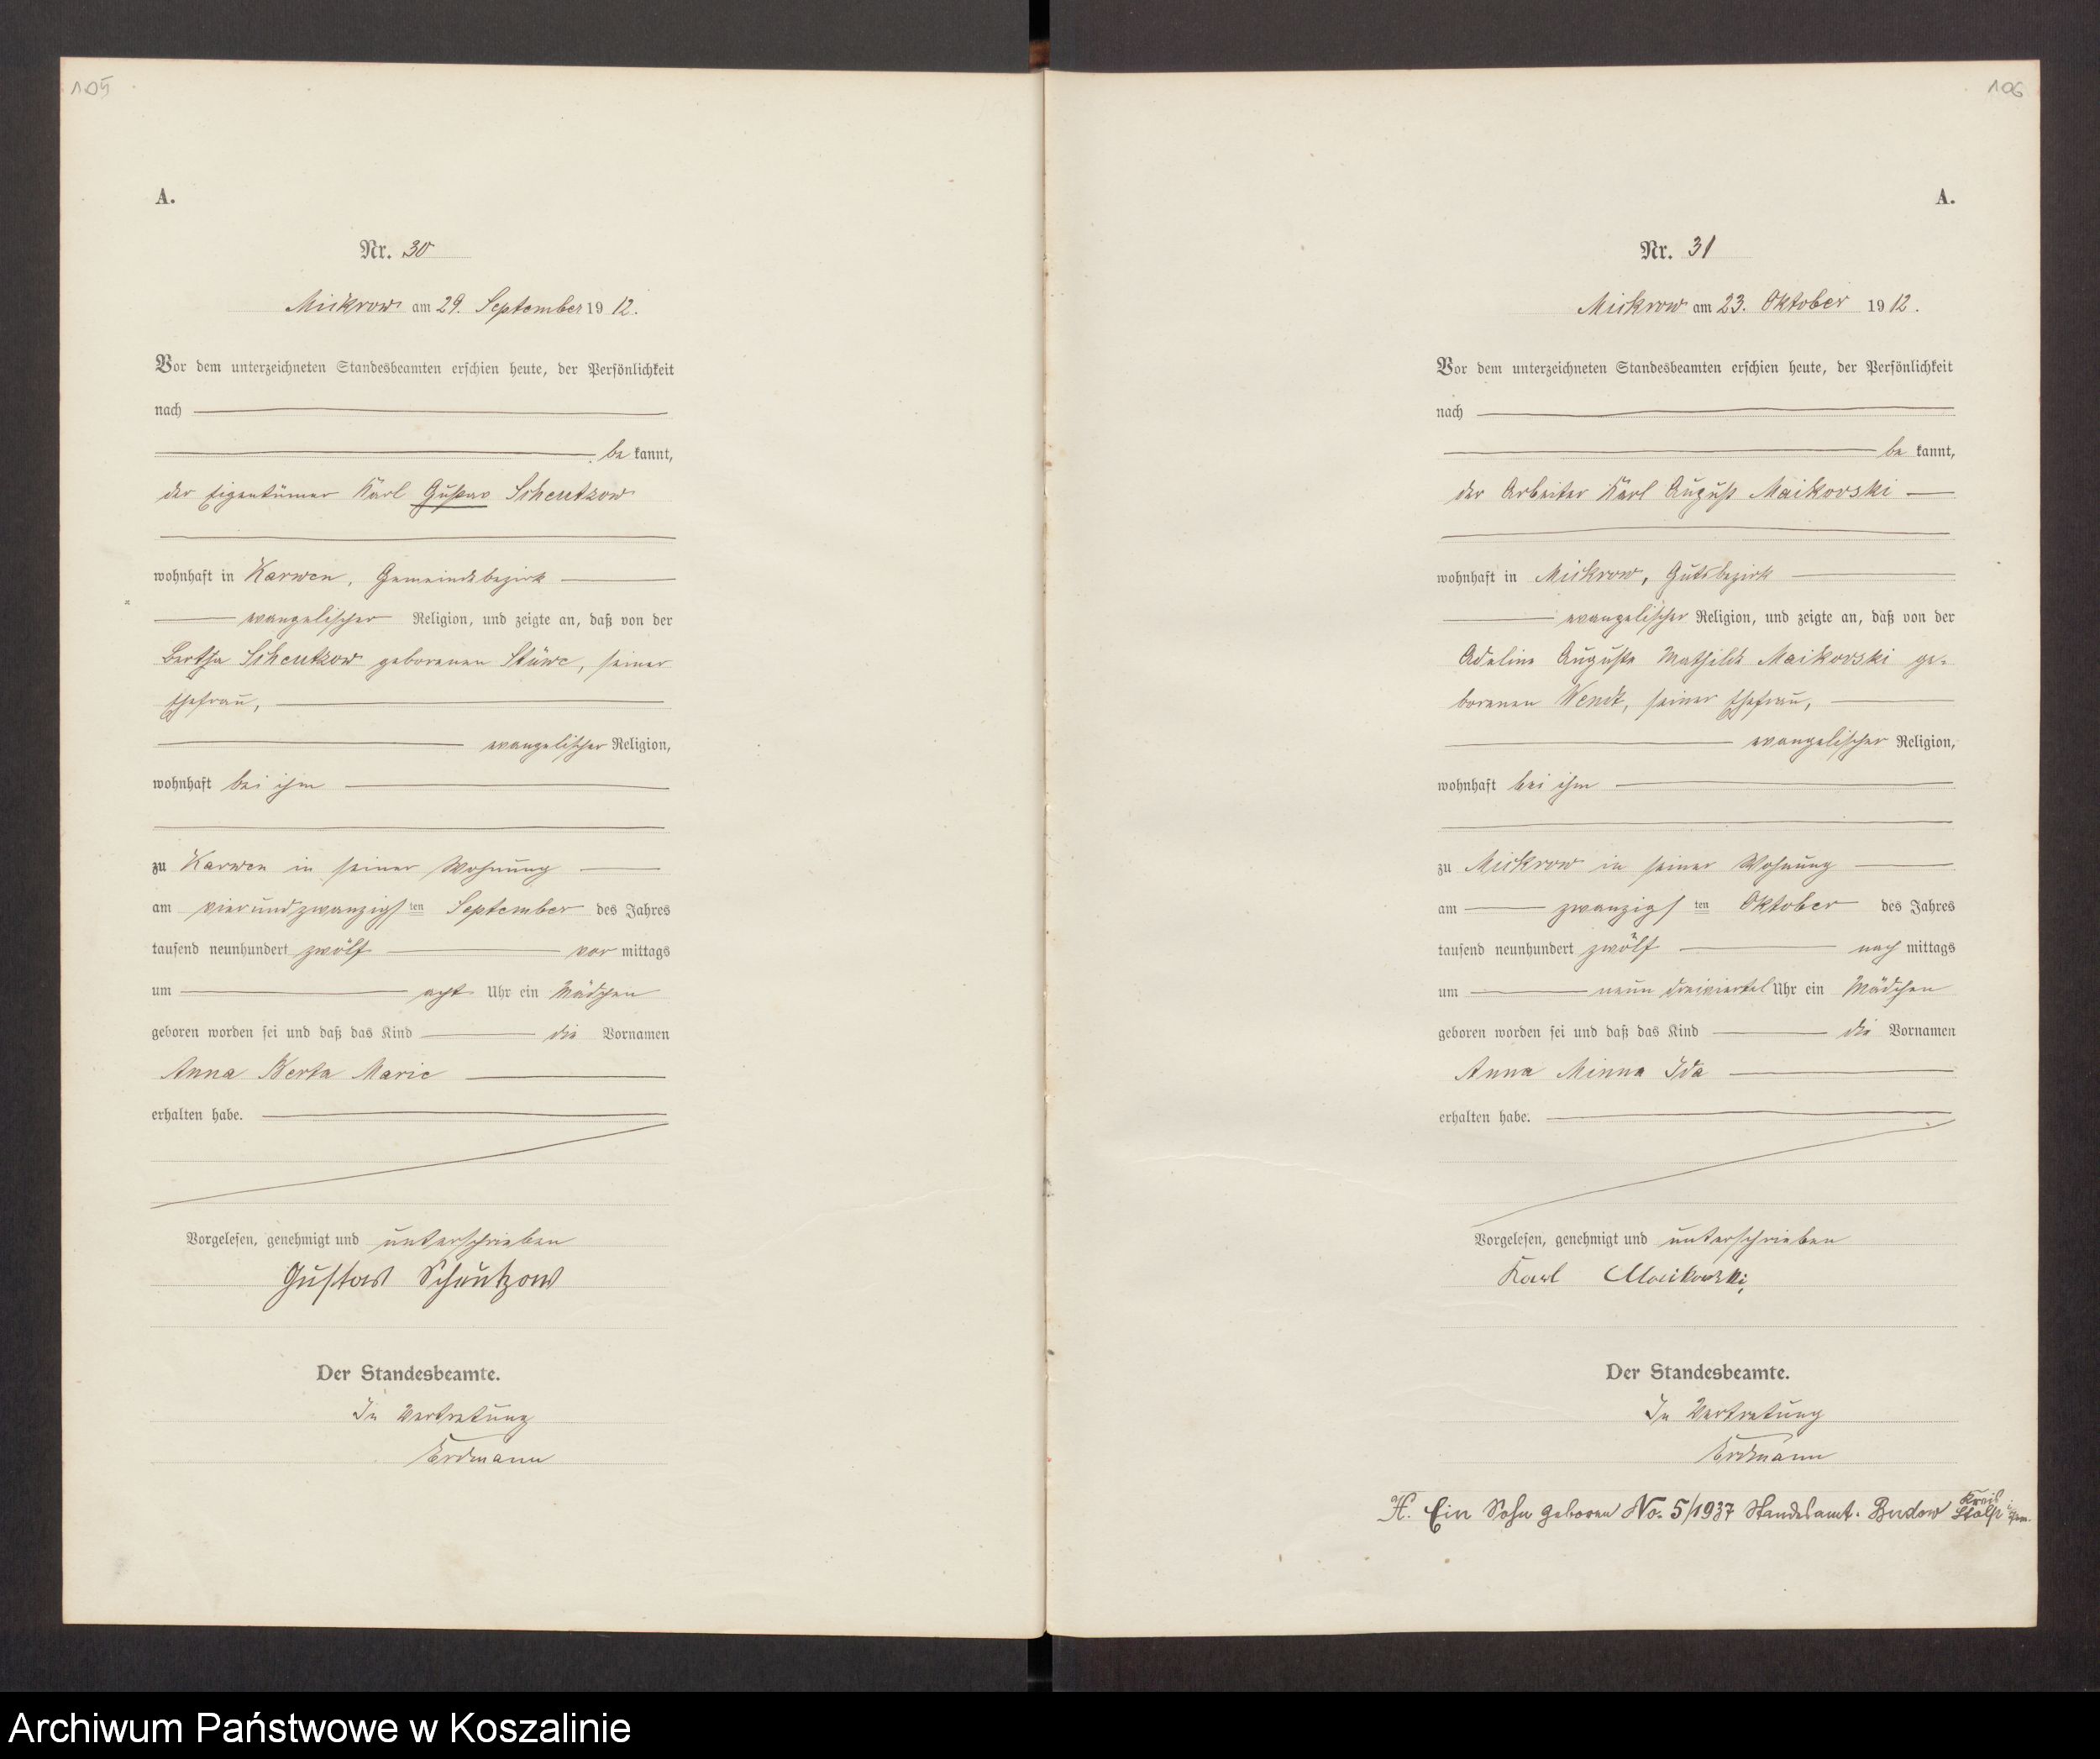 105
A.
Nr. 30
Mickrow am 29. September 19 12.
Vor dem unterzeichneten Standesbeamten erschien heute, der Persönlichkeit
nach
be kannt,
der Eigentümer Karl Gustav Scheutzow
wohnhaft in Karwen, Gemeindebezirk
evangelischer Religion, und zeigte an, daß von der
Bertha Scheutzow geborenen Stüwe, seiner
Ehefrau,
evangelischer Religion,
wohnhaft bei ihm
zu Karwen in seiner Wohnung
am vierundzwanzigs ten September des Jahres
tausend neunhundert zwölf vor mittags
um acht Uhr ein Mädchen
geboren worden sei und daß das Kind die Vornamen
Anna Berta Marie
erhalten habe.
Vorgelesen, genehmigt und unterschrieben
Gustav Scheutzow
Der Standesbeamte.
In Vertretung
Erdmann
106
A.
Nr. 31
Mickrow am 23. Oktober 19 12.
Vor dem unterzeichneten Standesbeamten erschien heute, der Persönlichkeit
nach
be kannt,
der Arbeiter Karl August Maikovski
wohnhaft in Mickrow, Gutsbezirk
evangelischer Religion, und zeigte an, daß von der
Adeline Auguste Mathilde Maikovski ge-
borenen Wendt, seiner Ehefrau,
evangelischer Religion,
wohnhaft bei ihm
zu Mickrow in seiner Wohnung
am zwanzigs ten Oktober des Jahres
tausend neunhundert zwölf nach mittags
um neun dreiviertel Uhr ein Mädchen
geboren worden sei und daß das Kind die Vornamen
Anna Minna Ida
erhalten habe.
Vorgelesen, genehmigt und unterschrieben
Karl Maikowski
Der Standesbeamte.
In Vertretung
Erdmann
H. Ein Sohn geboren No. 5/1937 Standesamt. Budow Kreis Stolp i. Pom.
Archiwum Państwowe w Koszalinie